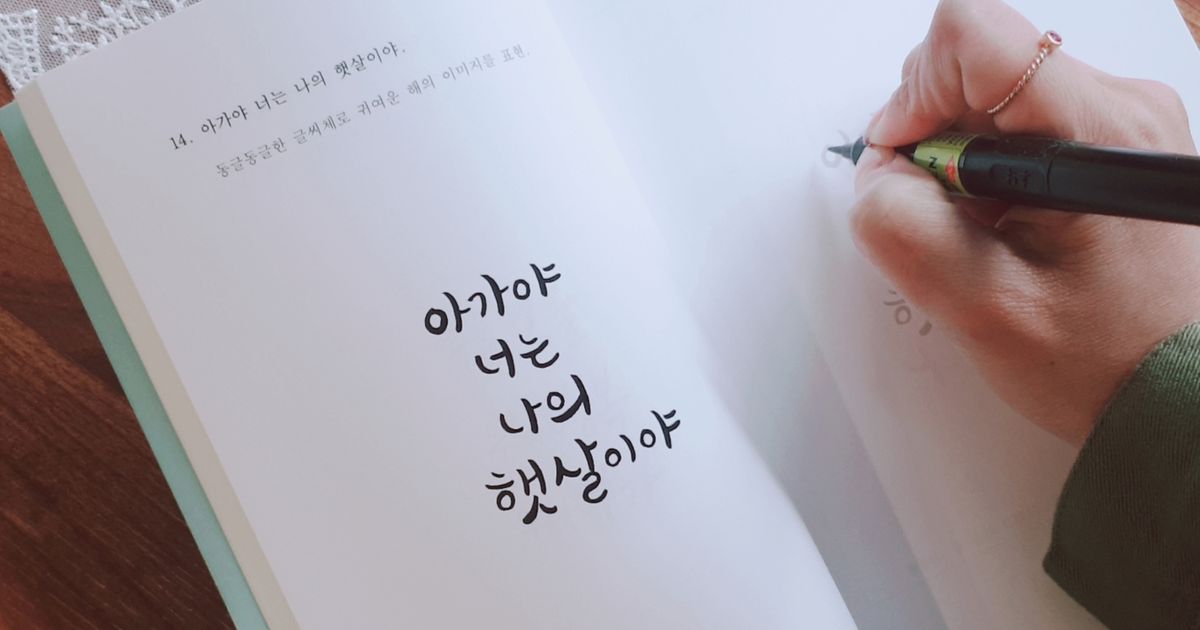 14. 아가야 너는 나의 햇살이야.
동글동글한 글씨체로 귀여운 해의 이미지를 표현.
아가야
너는
나의
햇살이야